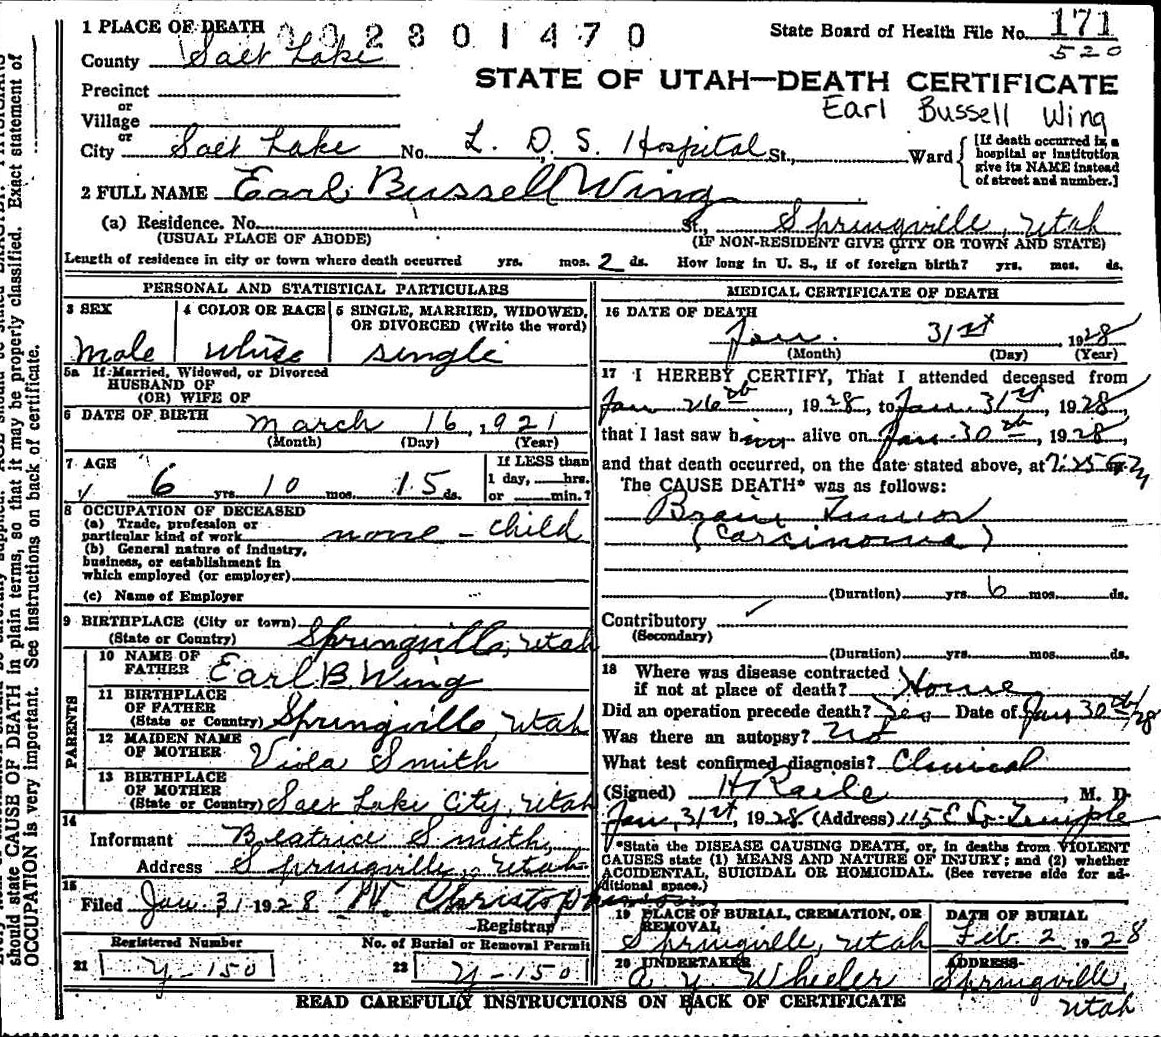 1 PLACE OF DEATH 002801470 State Board of Health File No. 171
County Salt Lake 520
STATE OF UTAH—DEATH CERTIFICATE
Precinct
or
Earl Bussell Wing
Village
or
City Salt Lake No. L. D. S. Hospital St., Ward [If death occurred in a hospital or institution give its NAME instead of street and number.]
2 FULL NAME Earl Bussell Wing
(a) Residence. No. St., Springville, Utah
(USUAL PLACE OF ABODE) (IF NON-RESIDENT GIVE CITY OR TOWN AND STATE)
Length of residence in city or town where death occurred yrs. mos. 2 ds. How long in U. S., if of foreign birth? yrs. mos. ds.
PERSONAL AND STATISTICAL PARTICULARS
3 SEX 4 COLOR OR RACE 5 SINGLE, MARRIED, WIDOWED, OR DIVORCED (Write the word)
Male White Single
5a If Married, Widowed, or Divorced
HUSBAND OF
(OR) WIFE OF
6 DATE OF BIRTH March 16, 1921
(Month) (Day) (Year)
7 AGE If LESS than
1 day, hrs.
6 yrs. 10 mos. 15 ds. or min.?
8 OCCUPATION OF DECEASED
(a) Trade, profession or
particular kind of work none - child
(b) General nature of industry,
business, or establishment in
which employed (or employer)
(c) Name of Employer
9 BIRTHPLACE (City or town)
(State or Country) Springville, Utah
PARENTS
10 NAME OF
FATHER Earl B. Wing
11 BIRTHPLACE
OF FATHER
(State or Country) Springville, Utah
12 MAIDEN NAME
OF MOTHER Viola Smith
13 BIRTHPLACE
OF MOTHER
(State or Country) Salt Lake City, Utah
14
Informant Beatrice Smith,
Address Springville, Utah
15
Filed Jan 31 1928 Registrar
Registered Number No. of Burial or Removal Permit
21 y-150 22 y-150
MEDICAL CERTIFICATE OF DEATH
16 DATE OF DEATH
Jan. 31st 1928
(Month) (Day) (Year)
17 I HEREBY CERTIFY, That I attended deceased from
Jan 26th, 1928, to Jan. 31st, 1928,
that I last saw him alive on Jan. 30th, 1928,
and that death occurred, on the date stated above, at 7:25
The CAUSE DEATH* was as follows:
Brain Tumor
(Carcinoma)
(Duration) yrs. 6 mos. ds.
Contributory
(Secondary)
(Duration) yrs. mos. ds.
18 Where was disease contracted
if not at place of death? Home
Did an operation precede death? Yes Date of Jan 30th/28
Was there an autopsy? No
What test confirmed diagnosis? Clinical
(Signed) M. D.
Jan, 31st, 1928 (Address) 115 E. So. Temple
*State the DISEASE CAUSING DEATH, or, in deaths from VIOLENT
CAUSES state (1) MEANS AND NATURE OF INJURY; and (2) whether
ACCIDENTAL, SUICIDAL OR HOMICIDAL. (See reverse side for ad-
ditional space.)
19 PLACE OF BURIAL, CREMATION, OR REMOVAL DATE OF BURIAL
Springville, Utah Feb. 2 1928
20 UNDERTAKER ADDRESS
A. Y. Wheeler Springville, Utah
READ CAREFULLY INSTRUCTIONS ON BACK OF CERTIFICATE
should state CAUSE OF DEATH in plain terms, so that it may be properly classified. Exact statement of
OCCUPATION is very important. See instructions on back of certificate.